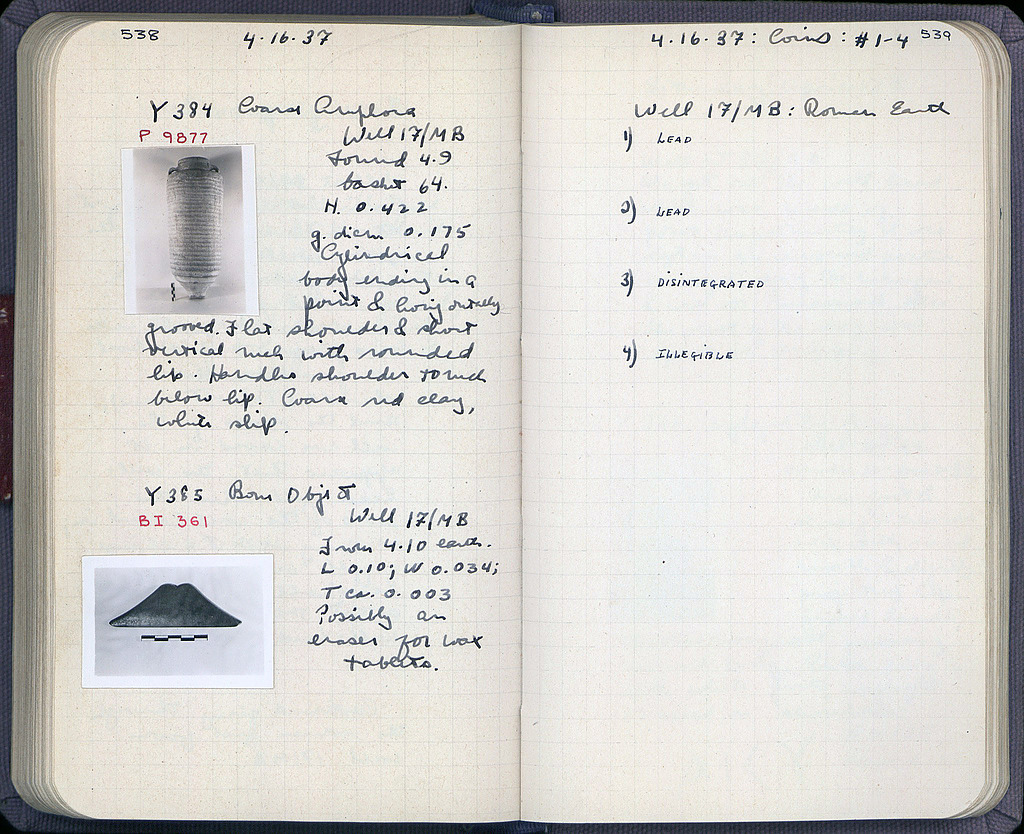 538
4.16.37
Y 384 Coarse Amphora
P 9877
Well 17/MB
Found 4.9
basket 64.
H. 0.422
g. diam 0.175
Cylindrical
body ending in a
point & horizontally
grooved. Flat shoulder & short
vertical neck with rounded
lip. Handles shoulder to neck
below lip. Coarse red clay,
white slip.
Y 385 Bone Object
BI 361
Well 17/MB
From 4.10 earth.
L 0.10; W 0.034;
T ca. 0.003
Possibly an
eraser for wax
tablets.
4.16.37: Coins: #1-4
539
Well 17/MB: Roman Earth
1) LEAD
2) LEAD
3) DISINTEGRATED
4) ILLEGIBLE